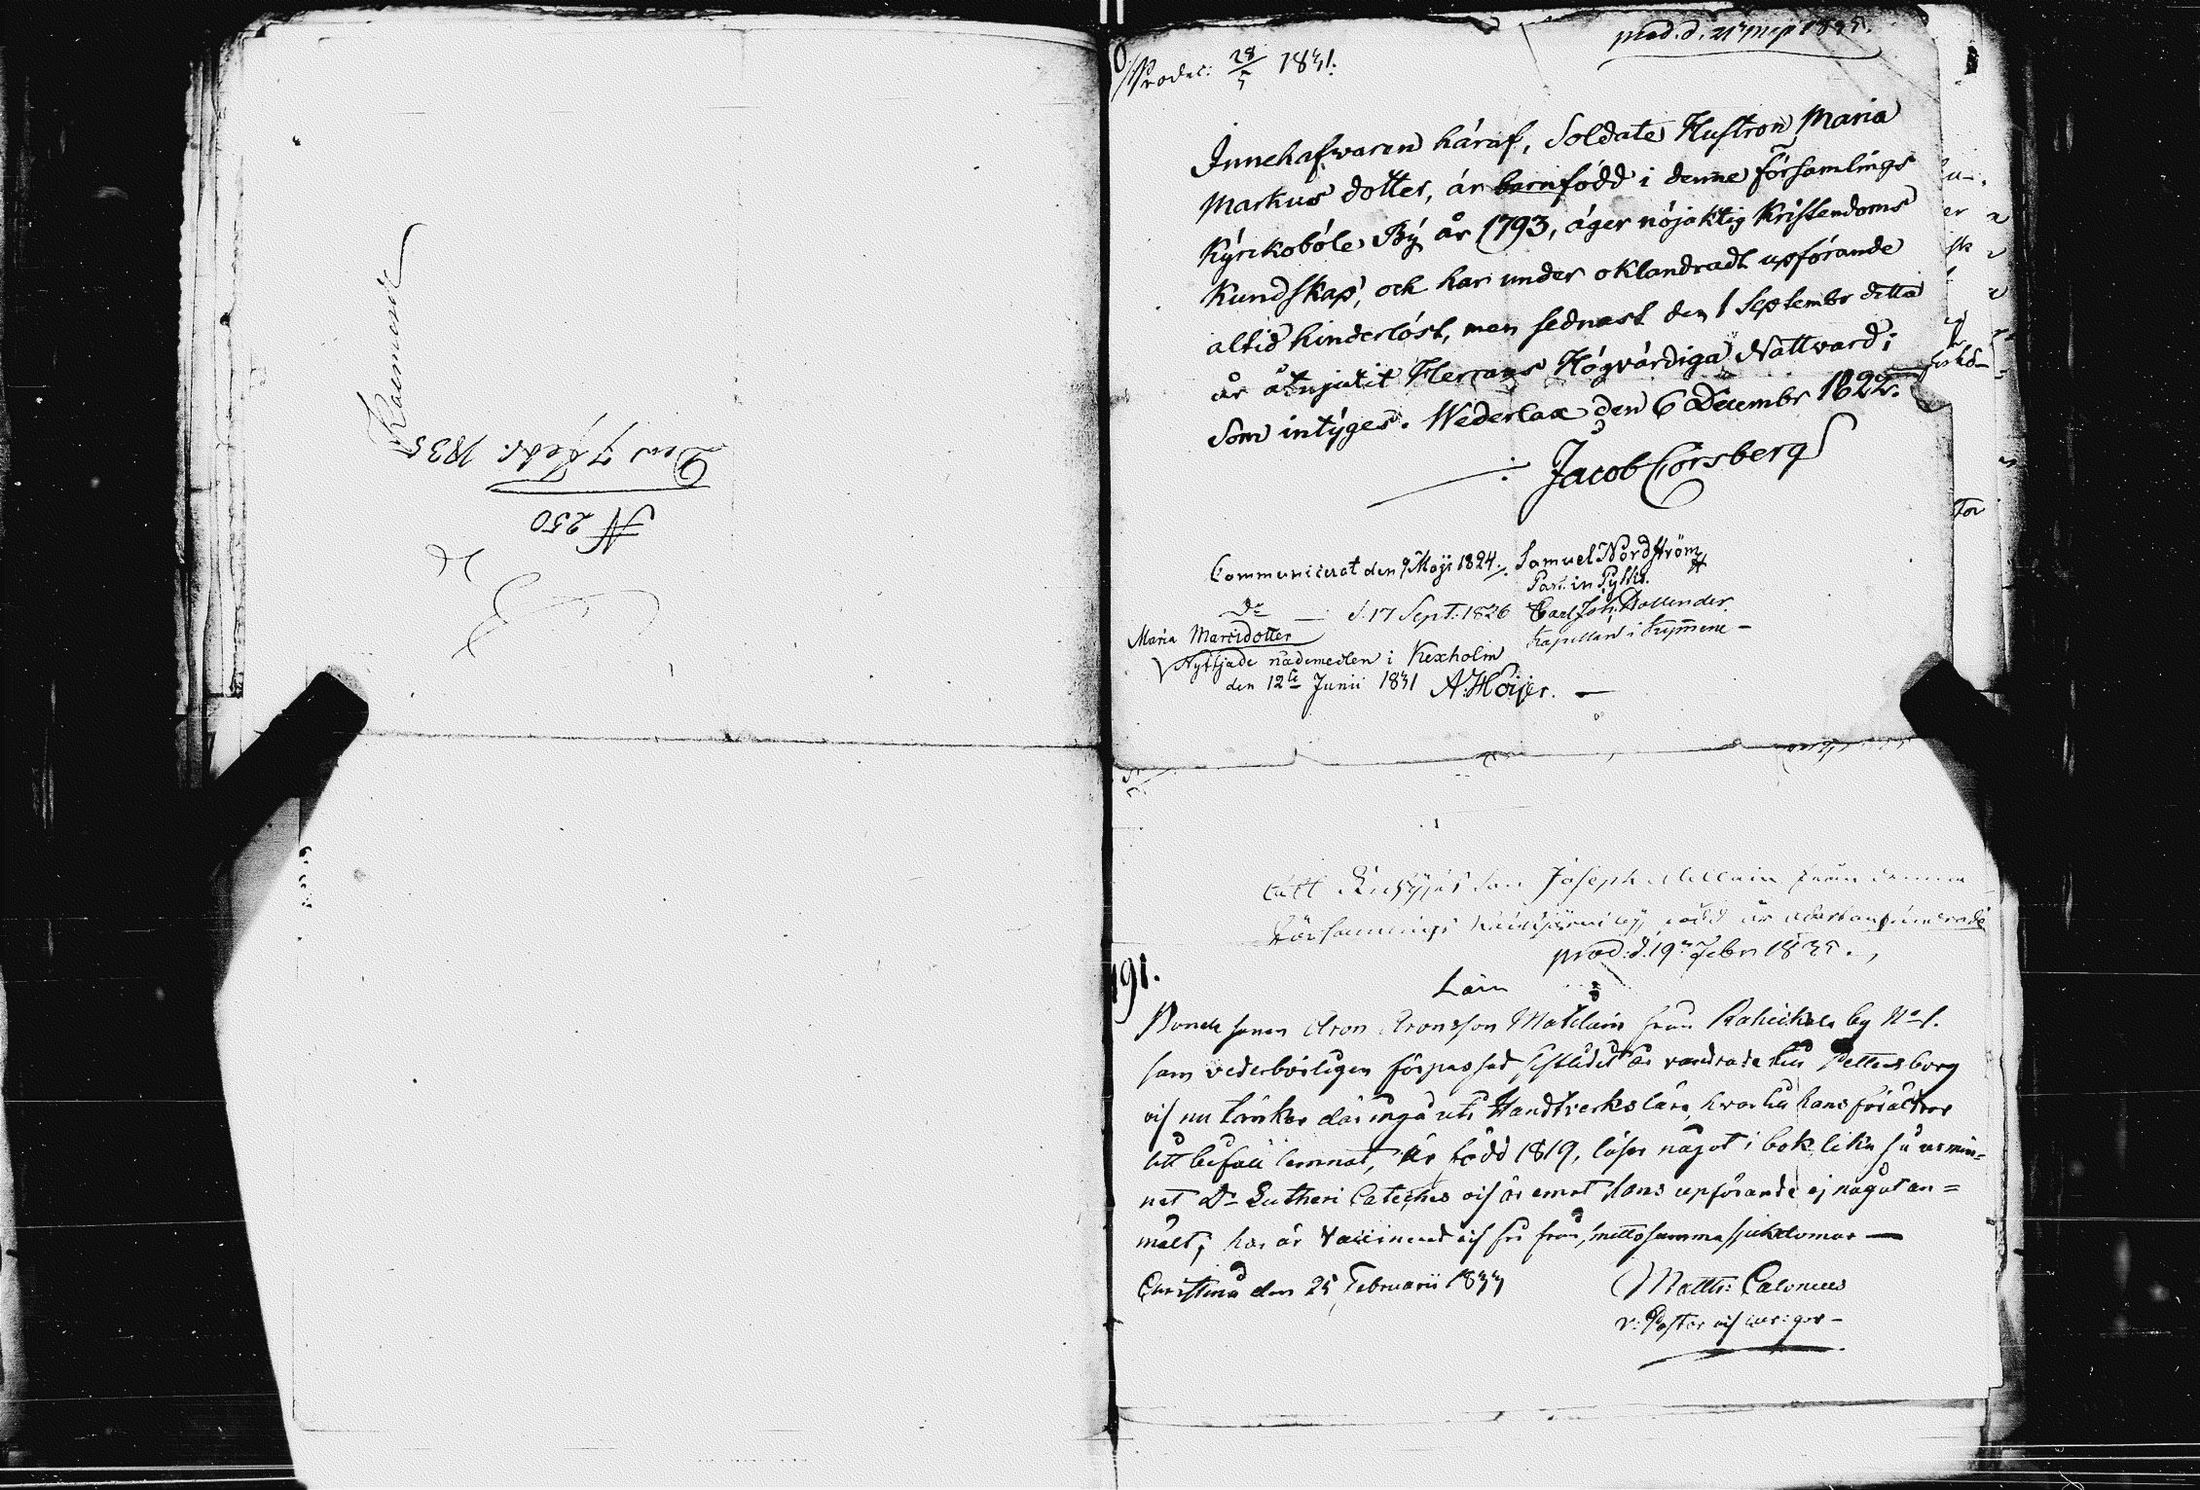 Raemenne
N 250
Den 7 Febr. 1835
Prodec: 28/5 1831.
prod. d. 21 Maji 1835.
Innehafwaren häraf, Soldate Hustron Maria
Markus dotter, är barnfödd i denne församlings
Kyrckoböle By år 1793, äger nöjaktig Kristendoms
Kundskap, och har under oklandradt upförande
altid hinderlöst, men sednast den 1 Septembr detta
år åtnjutit Herrans Högvärdiga Nattvard;
Som intyges. Wederlax den 6 Decembr 1822.
Jacob Corsberg
Communicerat den 9 Maji 1824. Samuel Nordström
Past. in Pyttis.
Do — d. 17 Sept. 1826 Carl Joh. Dollender.
Kapellan i Kymmene —
Maria Marcidotter
Nyttjade nådemedlen i Kexholm
den 12te Junii 1831 A. Höijer. —
Joseph från denna
prod: d. 19 Febr 1835.
191.
Lain
Bonde sonen Aron Aronsson Matilain från by No 1.
som vederbörligen förpassad sistledit år vandrade till Pettersborg
och nu tänker där ingå uti Handtverks lära, hvartill hans föräldrar
sitt bifall lemnat, är född 1819, läser något i bok lika så ur min=
net Dr Lutheri Cateches och är emot hans upförande ej något an=
mält; har är Vaccinerad och fri från smittosamma sjukdomar —
Christina den 25 Februarii 1833
Matth: Calonius
v: Pastor